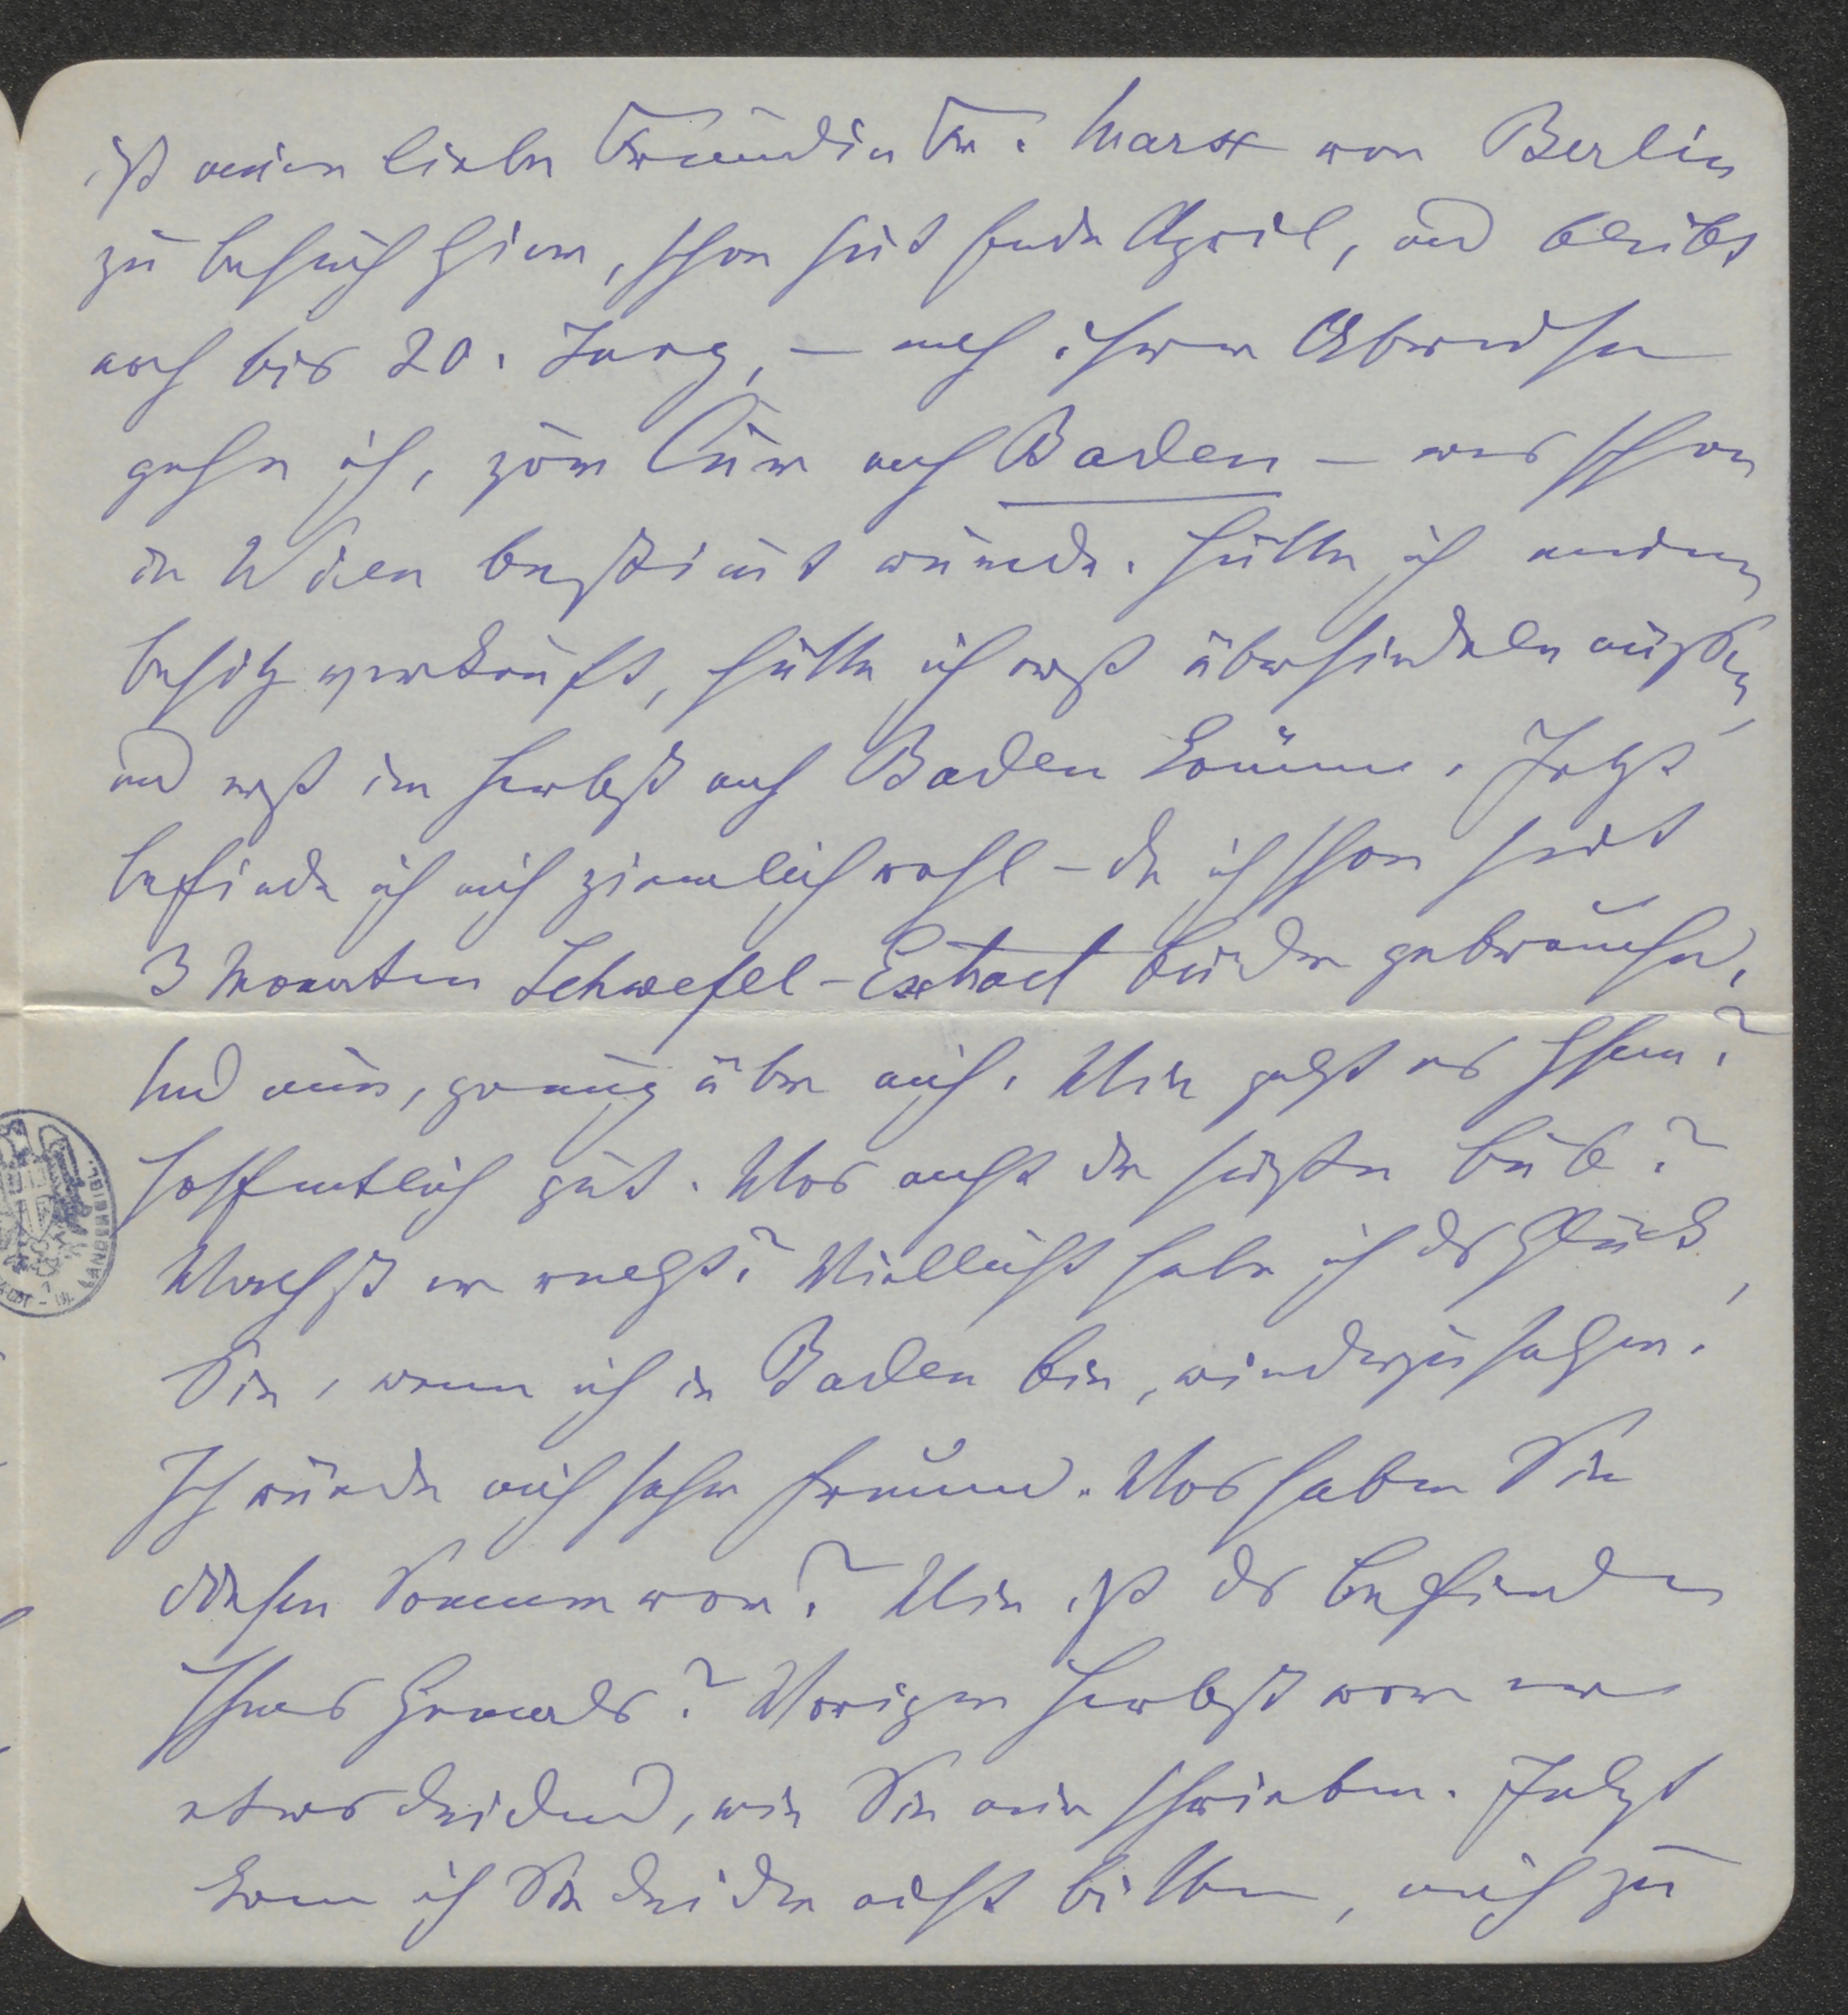 ist meine liebe Freundin Fr. Marx von Berlin
zu Besuch hier, schon seit Ende April, und bleibt
noch bis 20. Juny, – nach ihrer Abreise
gehe ich, zur Cur nach Baden – was schon
in Wien bestimt wurde. Hätte ich meinen
Besitz verkauft, hätte ich erst übersiedeln müssen,
und erst im Herbst nach Baden können. Jetzt
befinde ich mich ziemlich wohl – da ich schon seit
3 Monaten Schwefel-Extract Bäder gebrauche.
Und nun, genug über mich. Wie geht es Ihnen?
Hoffentlich gut. Was macht der süßte Bub?
Wachst er recht? Vielleicht habe ich das Glück,
Sie, wenn ich in Baden bin, wiederzusehen.
Ich würde mich sehr freuen. Was haben Sie
diesen Sommer vor? Wie ist das Befinden
Ihres Gemals? Vorigen Herbst war er
etwas leidend, wie Sie mir schrieben. Jetzt
kann ich Sie leider nicht bitten, mich zu
LANDESBIBL.